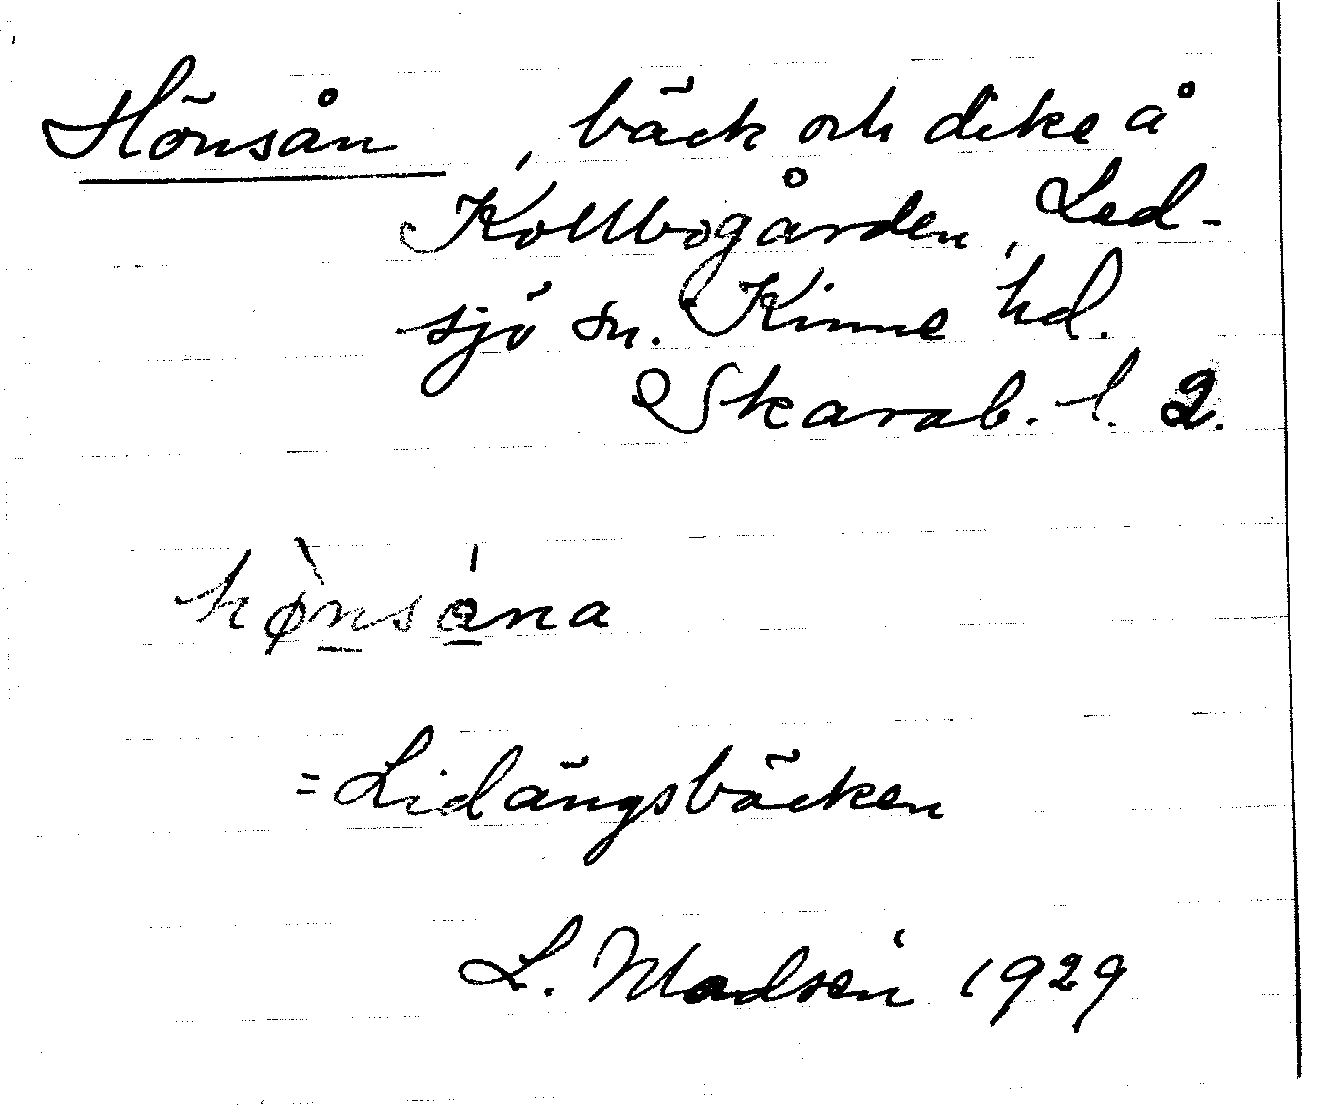 Hönsån, bäck och dike å
Kollbogården, Led-
sjö sn. Kinne hd.
Skarab. l. 2.
hø̀nsána
= Lidängsbäcken
L. Madsén 1929